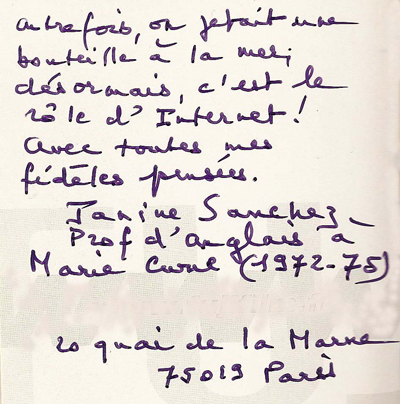 autrefois, on jetait une
bouteille à la mer;
désormais, c'est le
rôle d'Internet!
Avec toutes mes
fidèles pensées.
Janine Sanchez
Prof d'anglais à
Marie Curie (1972-75)
20 quai de la Marne
75019 Paris